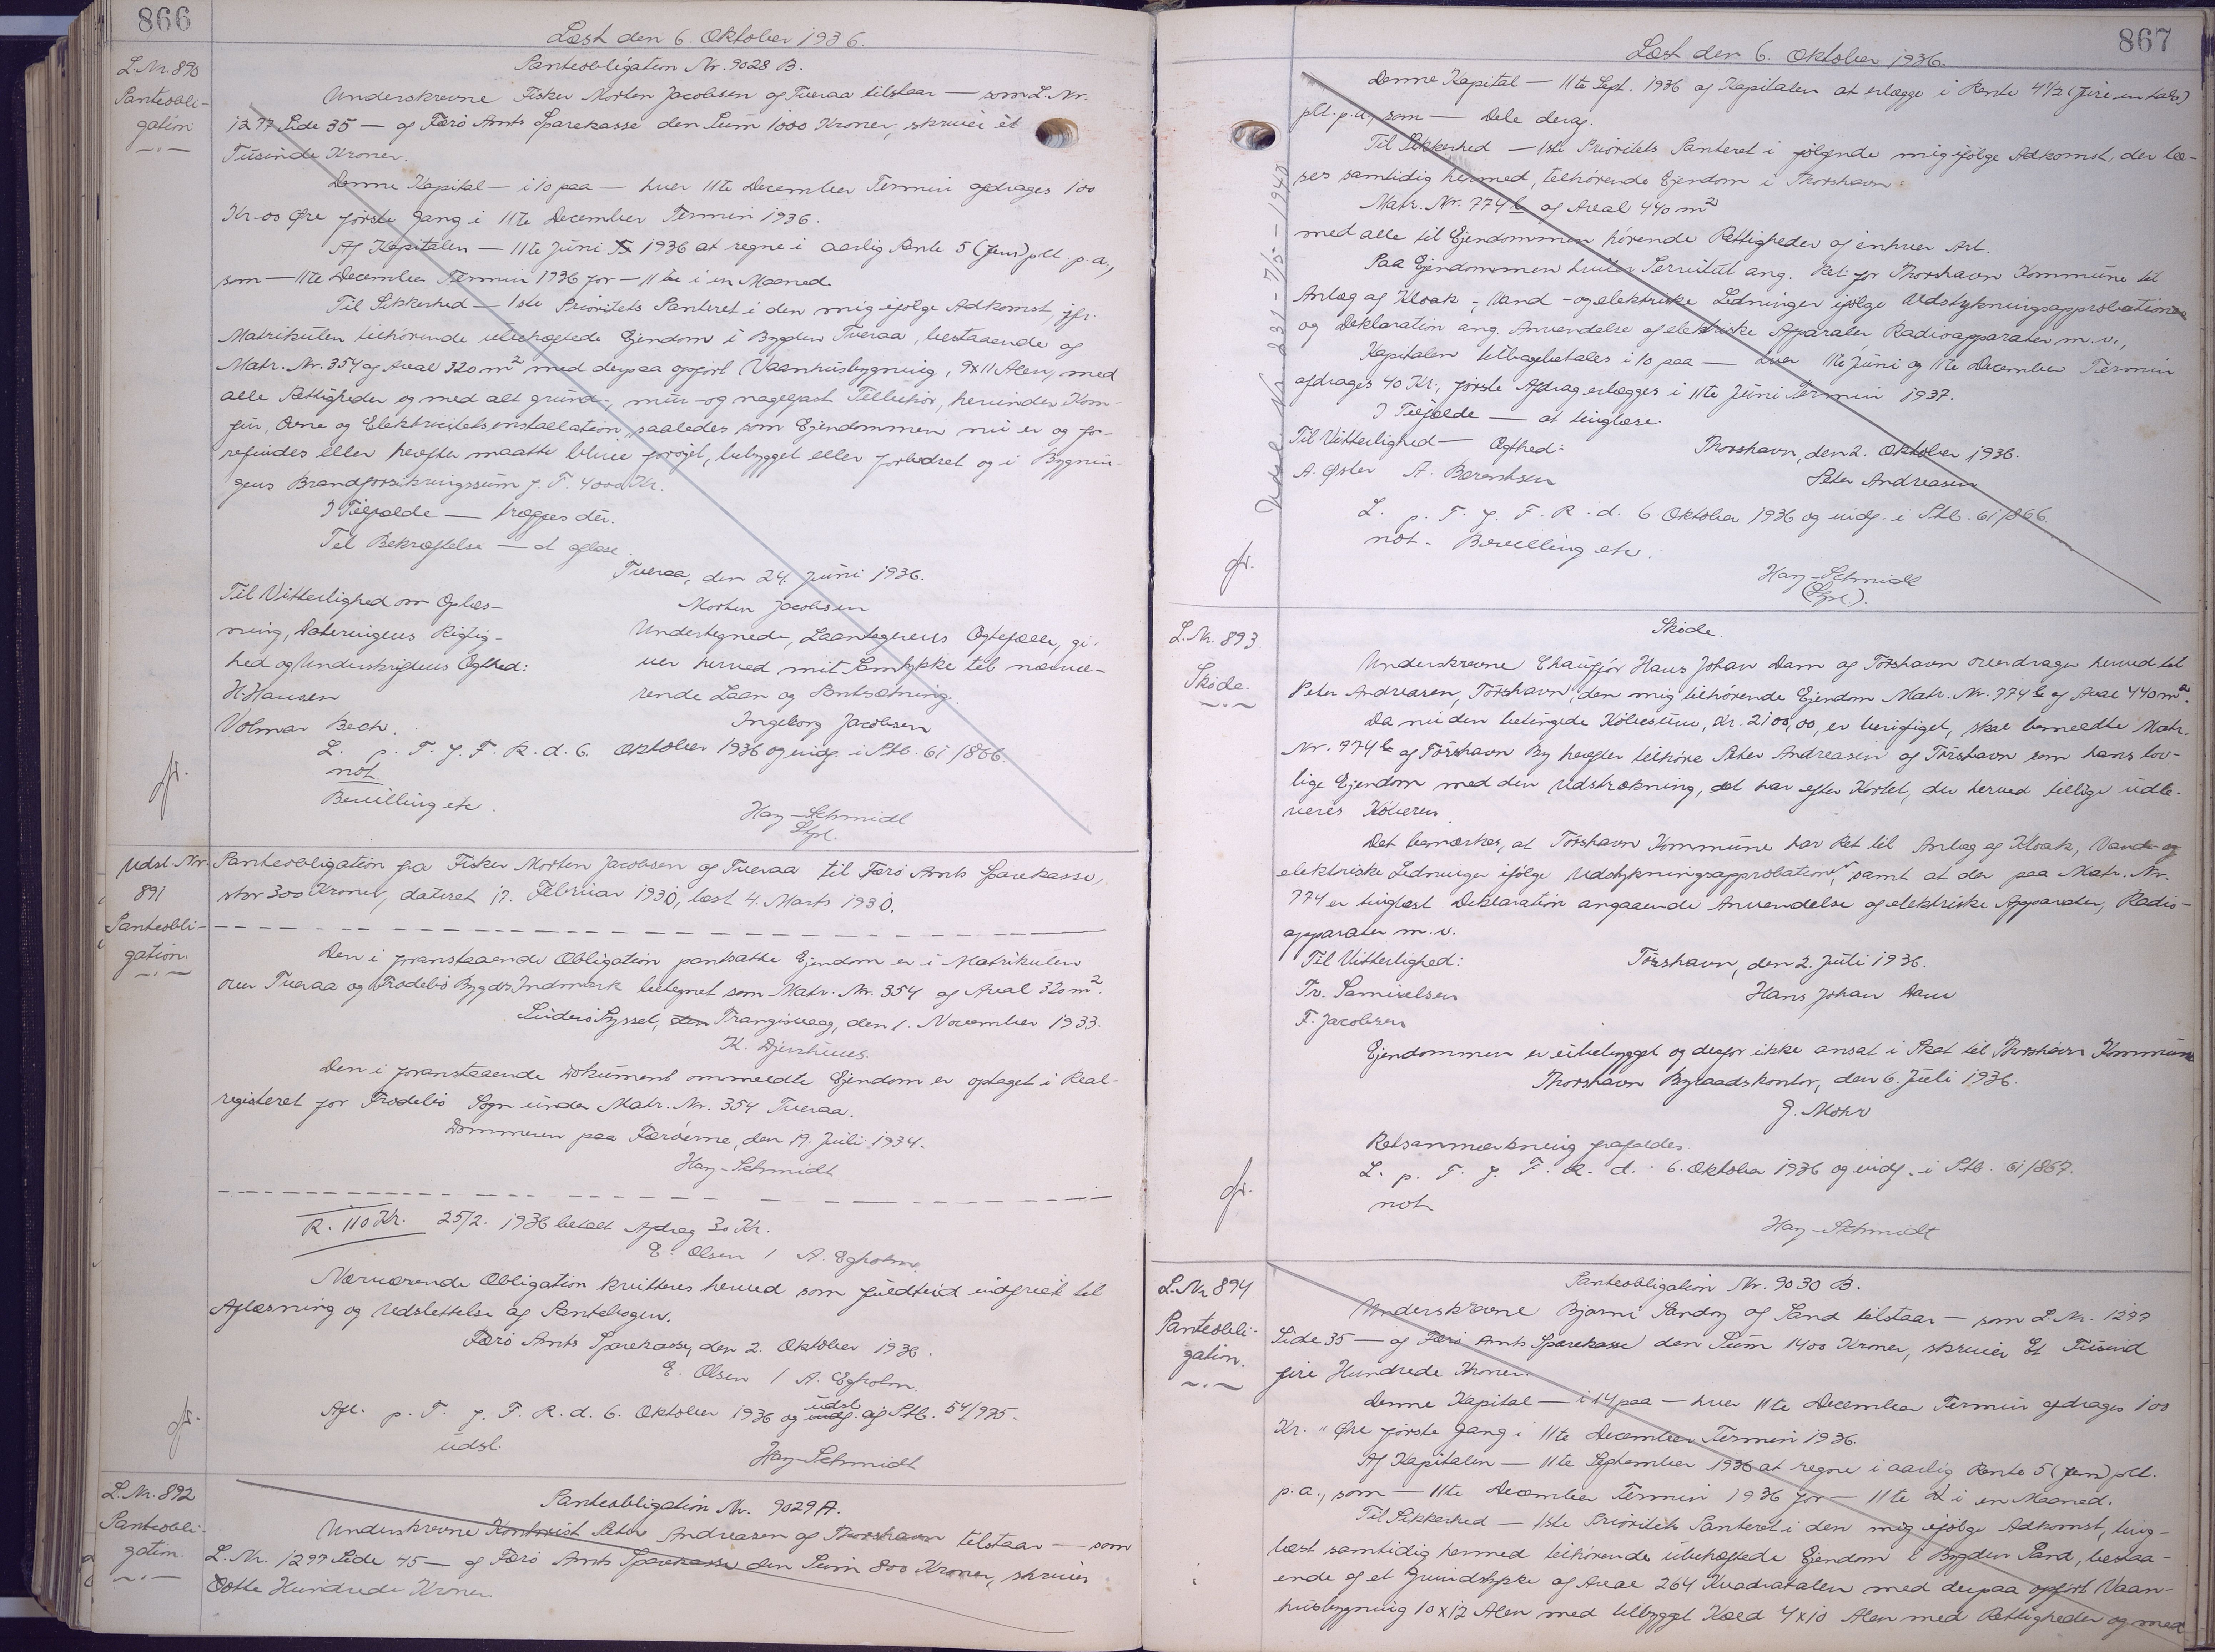 866
Læst den 6. Oktober 1936.
L.Nr. 890
Panteobli-
gation
Panteobligation Nr. 9028 B.
Underskrevne Fisker Morten Jacobsen af Tveraa tilstaar — som L. Nr.
1297 Side 35 — af Færø Amts Sparekasse den Sum 1000 Kroner, skriver ét
Tusinde Kroner.
Denne Kapital — i 10 paa — hver 11te December Termin afdrages 100
Kr. 00 Øre første Gang i 11te December Termin 1936.
Af Kapitalen — 11te Juni 1936 at regne i aarlig Rente 5 (fem) pCt. p.a.,
som — 11te December Termin 1936 for — 11te i en Maaned.
Til Sikkerhed — 1ste Prioritets Panteret i den mig ifølge Adkomst, jfr.
Matrikulen tilhørende ubehæftede Ejendom i Bygden Tveraa, bestaaende af
Matr. Nr. 354 af Areal 320 m² med derpaa opført Vaanhusbygning, 9x11 Alen, med
alle Rettigheder og med alt grund-, mur- og nagelfast Tilbehør, herunder Kom-
fur, Ovne og Elektricitetsinstallation, saaledes som Ejendommen nu er og fo-
refindes eller herefter maatte blive forøjet, bebygget eller forbedret og i Bygnin-
gens Brandforsikringssum f. T. 4000 Kr.
I Tilfælde — træffes dér.
Til Bekræftelse — at aflæse.
Tveraa, den 24. Juni 1936.
Til Vitterlighed om Oplæs-
ning, Dateringens Rigtig-
hed og Underskriftens Ægthed:
H. Hansen
Volmar Bech.
Morten Jacobsen
Undertegnede, Laantagerens Ægtefælle, gi-
ver herved mit Samtykke til nærvæ-
rende Laan og Pantsætning.
Ingeborg Jacobsen
L. p. T. f. F. R. d. 6. Oktober 1936 og indf. i Ptb. 61/866.
not.
Bevilling etc.
Hay-Schmidt
Sfpl.
Udsl. Nr.
891
Panteobli-
gation.
Panteobligation fra Fisker Morten Jacobsen af Tveraa til Færø Amts Sparekasse,
stor 300 Kroner, dateret 17. Februar 1930, læst 4. Marts 1930.
Den i foranstaaende Obligation pantsatte Ejendom er i Matrikulen
over Tveraa og Frodebø Bygds Indmark betegnet som Matr. Nr. 354 af Areal 320 m².
Suderø Syssel, den Trangisvaag, den 1. November 1933.
K. Djurhuus.
Den i foranstaaende Dokument ommeldte Ejendom er optaget i Real-
registeret for Frodebø Sogn under Matr. Nr. 354 Tveraa.
Dommeren paa Færøerne, den 19. Juli 1934.
Hay-Schmidt
R. 110 Kr. 25/2. 1936 betalt Afdrag 30 Kr.
E. Olsen / A. Egholm.
Nærværende Obligation kvitteres herved som fuldtud indfriet til
Aflæsning og Udslettelse af Pantebogen.
Færø Amts Sparekasse, den 2. Oktober 1936.
E. Olsen / A. Egholm.
Afl. p. T. f. F. R. d. 6. Oktober 1936 og indf. udsl. af Ptb. 54/935.
udsl.
Hay-Schmidt
L. Nr. 892
Panteobli-
gation.
Panteobligation Nr. 9029 A.
Underskrevne Kontorist Peter Andreasen af Thorshavn tilstaar — som
L. Nr. 1297 Side 45 — af Færø Amts Sparekasse den Sum 800 Kroner, skriver
Otte Hundrede Kroner.
867
Læst den 6. Oktober 1936.
Denne Kapital — 11te Sept. 1936 af Kapitalen at erlægge i Rente 4½ (fire en halv)
pCt. p.a., som — Dele deraf.
Til Sikkerhed — 1ste Prioritets Panteret i følgende mig ifølge Adkomst, der læ-
ses samtidig hermed, tilhørende Ejendom i Thorshavn:
Matr. Nr. 774 b af Areal 440 m²
med alle til Ejendommen hørende Rettigheder af enhver Art.
Paa Ejendommen hviler Servitut ang. Ret for Thorshavn Kommune til
Anlæg af Kloak-, Vand- og elektriske Ledninger ifølge Udstykningsapprobationen
og Deklaration ang. Anvendelse af elektriske Apparater, Radioapparater m.v.,
Kapitalen tilbagebetales i 10 paa — hver 11te Juni og 11te December Termin
afdrages 40 Kr., første Afdrag erlægges i 11te Juni Termin 1937.
I Tilfælde — at tinglæse.
Til Vitterlighed — Ægthed:
Thorshavn, den 2. Oktober 1936.
A. Øster A. Berentsen
Peter Andreasen
L. p. T. f. F. R. d. 6. Oktober 1936 og indf. i Ptb. 61/866.
not. Bevilling etc.
Hay-Schmidt
(Sfpl.).
Udsl. Nr. 231 - 7/5 - 1940
L. Nr. 893.
Skøde.
Skøde.
Underskrevne Chauffør Hans Johan Dam af Tórshavn overdrager herved til
Peter Andreasen, Tórshavn, den mig tilhørende Ejendom Matr. Nr. 774 b af Areal 440 m².
Da nu den betingede Købesum, Kr. 2100,00, er berigtiget, skal bemeldte Matr.
Nr. 774 b af Tórshavn By herefter tilhøre Peter Andreasen af Tórshavn som hans lov-
lige Ejendom med den Udstrækning, det har efter Kortet, der herved tillige udle-
veres Køberen.
Det bemærkes, at Tórshavn Kommune har Ret til Anlæg af Kloak, Vand- og
elektriske Ledninger ifølge Udstykningsapprobation, samt at der paa Matr. Nr.
774 er tinglæst Deklaration angaaende Anvendelse af elektriske Apparater, Radio-
apparater m.v.
Til Vitterlighed:
Tórshavn, den 2. Juli 1936.
Tr. Samuelsen
Hans Johan Dam
F. Jacobsen
Ejendommen er ubebygget og derfor ikke ansat i Skat til Thorshavn Kommune
Thorshavn Byraadskontor, den 6. Juli 1936.
J. Mohr
Retsanmærkning frafaldes.
L. p. T. f. F. R. d. 6. Oktober 1936 og indf. i Ptb. 61/867.
not.
Hay-Schmidt
L. Nr. 894
Panteobli-
gation.
Panteobligation Nr. 9030 B.
Underskrevne Bjarni Sandoy af Sand tilstaar — som L. Nr. 1297
Side 35 — af Færø Amts Sparekasse den Sum 1400 Kroner, skriver Et Tusind
fire Hundrede Kroner.
Denne Kapital — i 14 paa — hver 11te December Termin afdrages 100
Kr. " Øre første Gang i 11te December Termin 1936.
Af Kapitalen — 11te September 1936 at regne i aarlig Rente 5 (fem) pCt.
p.a., som — 11te December Termin 1936 for — 11te i en Maaned.
Til Sikkerhed — 1ste Prioritets Panteret i den mig ifølge Adkomst, ting-
læst samtidig hermed tilhørende ubehæftede Ejendom i Bygden Sand, bestaa-
ende af et Grundstykke af Areal 264 Kvadratalen med derpaa opført Vaan-
husbygning 10x12 Alen med tilbygget Kæld 4x10 Alen med Rettigheder og med